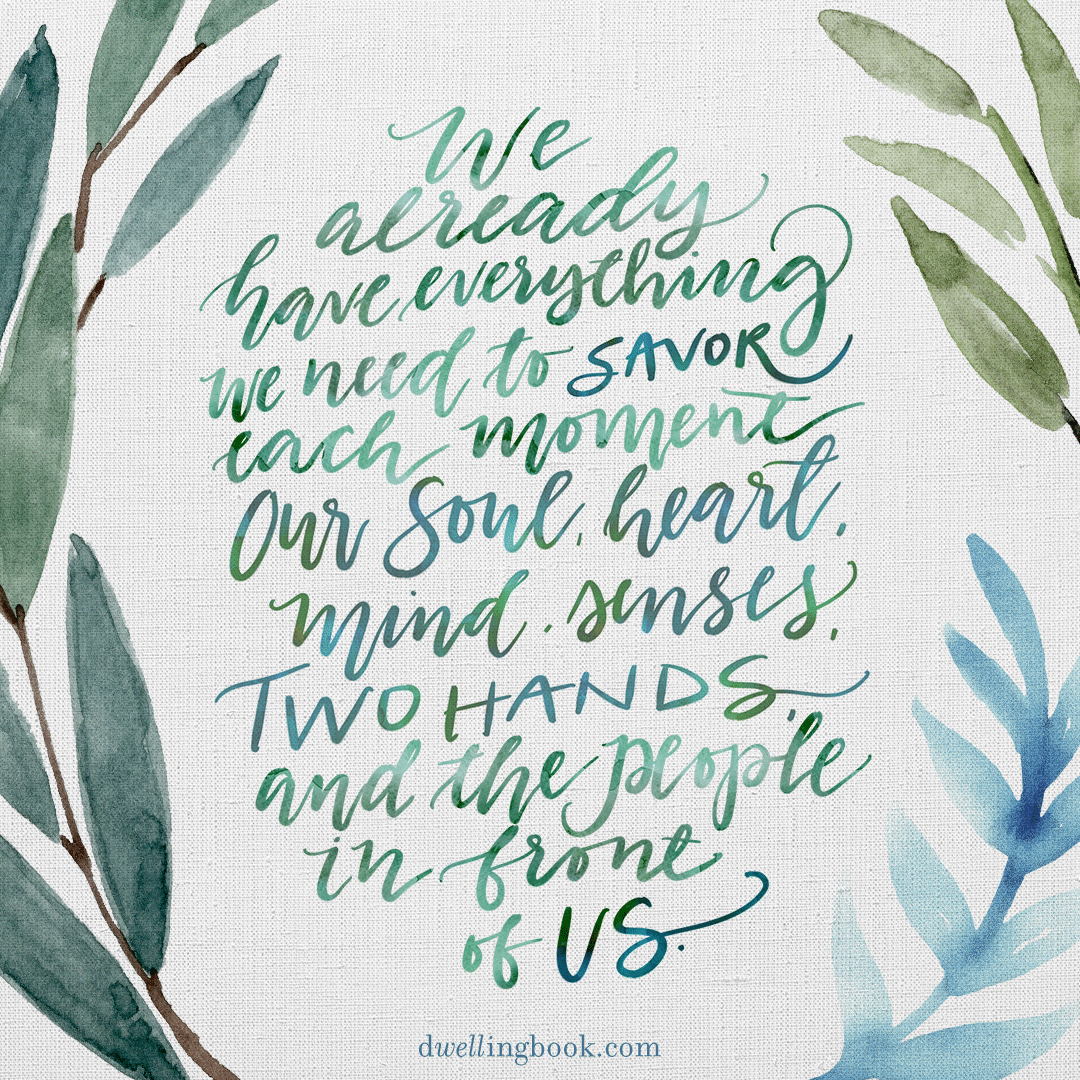 We
already
have everything
we need to SAVOR
each moment
Our Soul, heart,
mind, senses,
TWO HANDS,
and the people
in front
of US.
dwellingbook.com